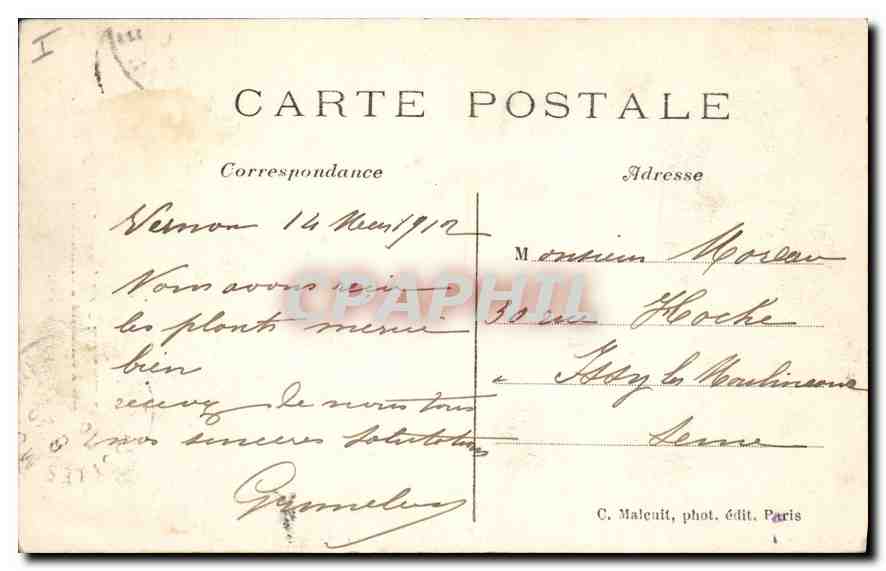 I
CARTE POSTALE
Correspondance
Vernon 14 Mars 1912
Nous avons reçu
les plants merci
bien
recevez de nous tous
nos sincères salutations
Adresse
Monsieur Moreau
30 rue Hoche
a Issy les Moulineaux
Seine
C. Malcuit, phot. édit. Paris
CPAPHIL